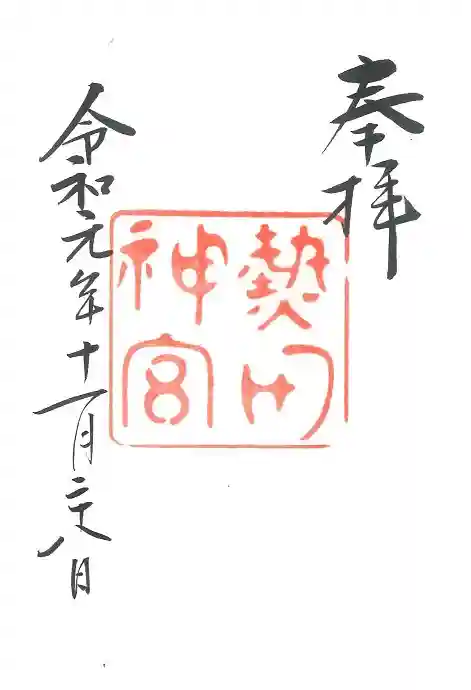 奉拝
熱田
神宮
令和元年十一月二十八日